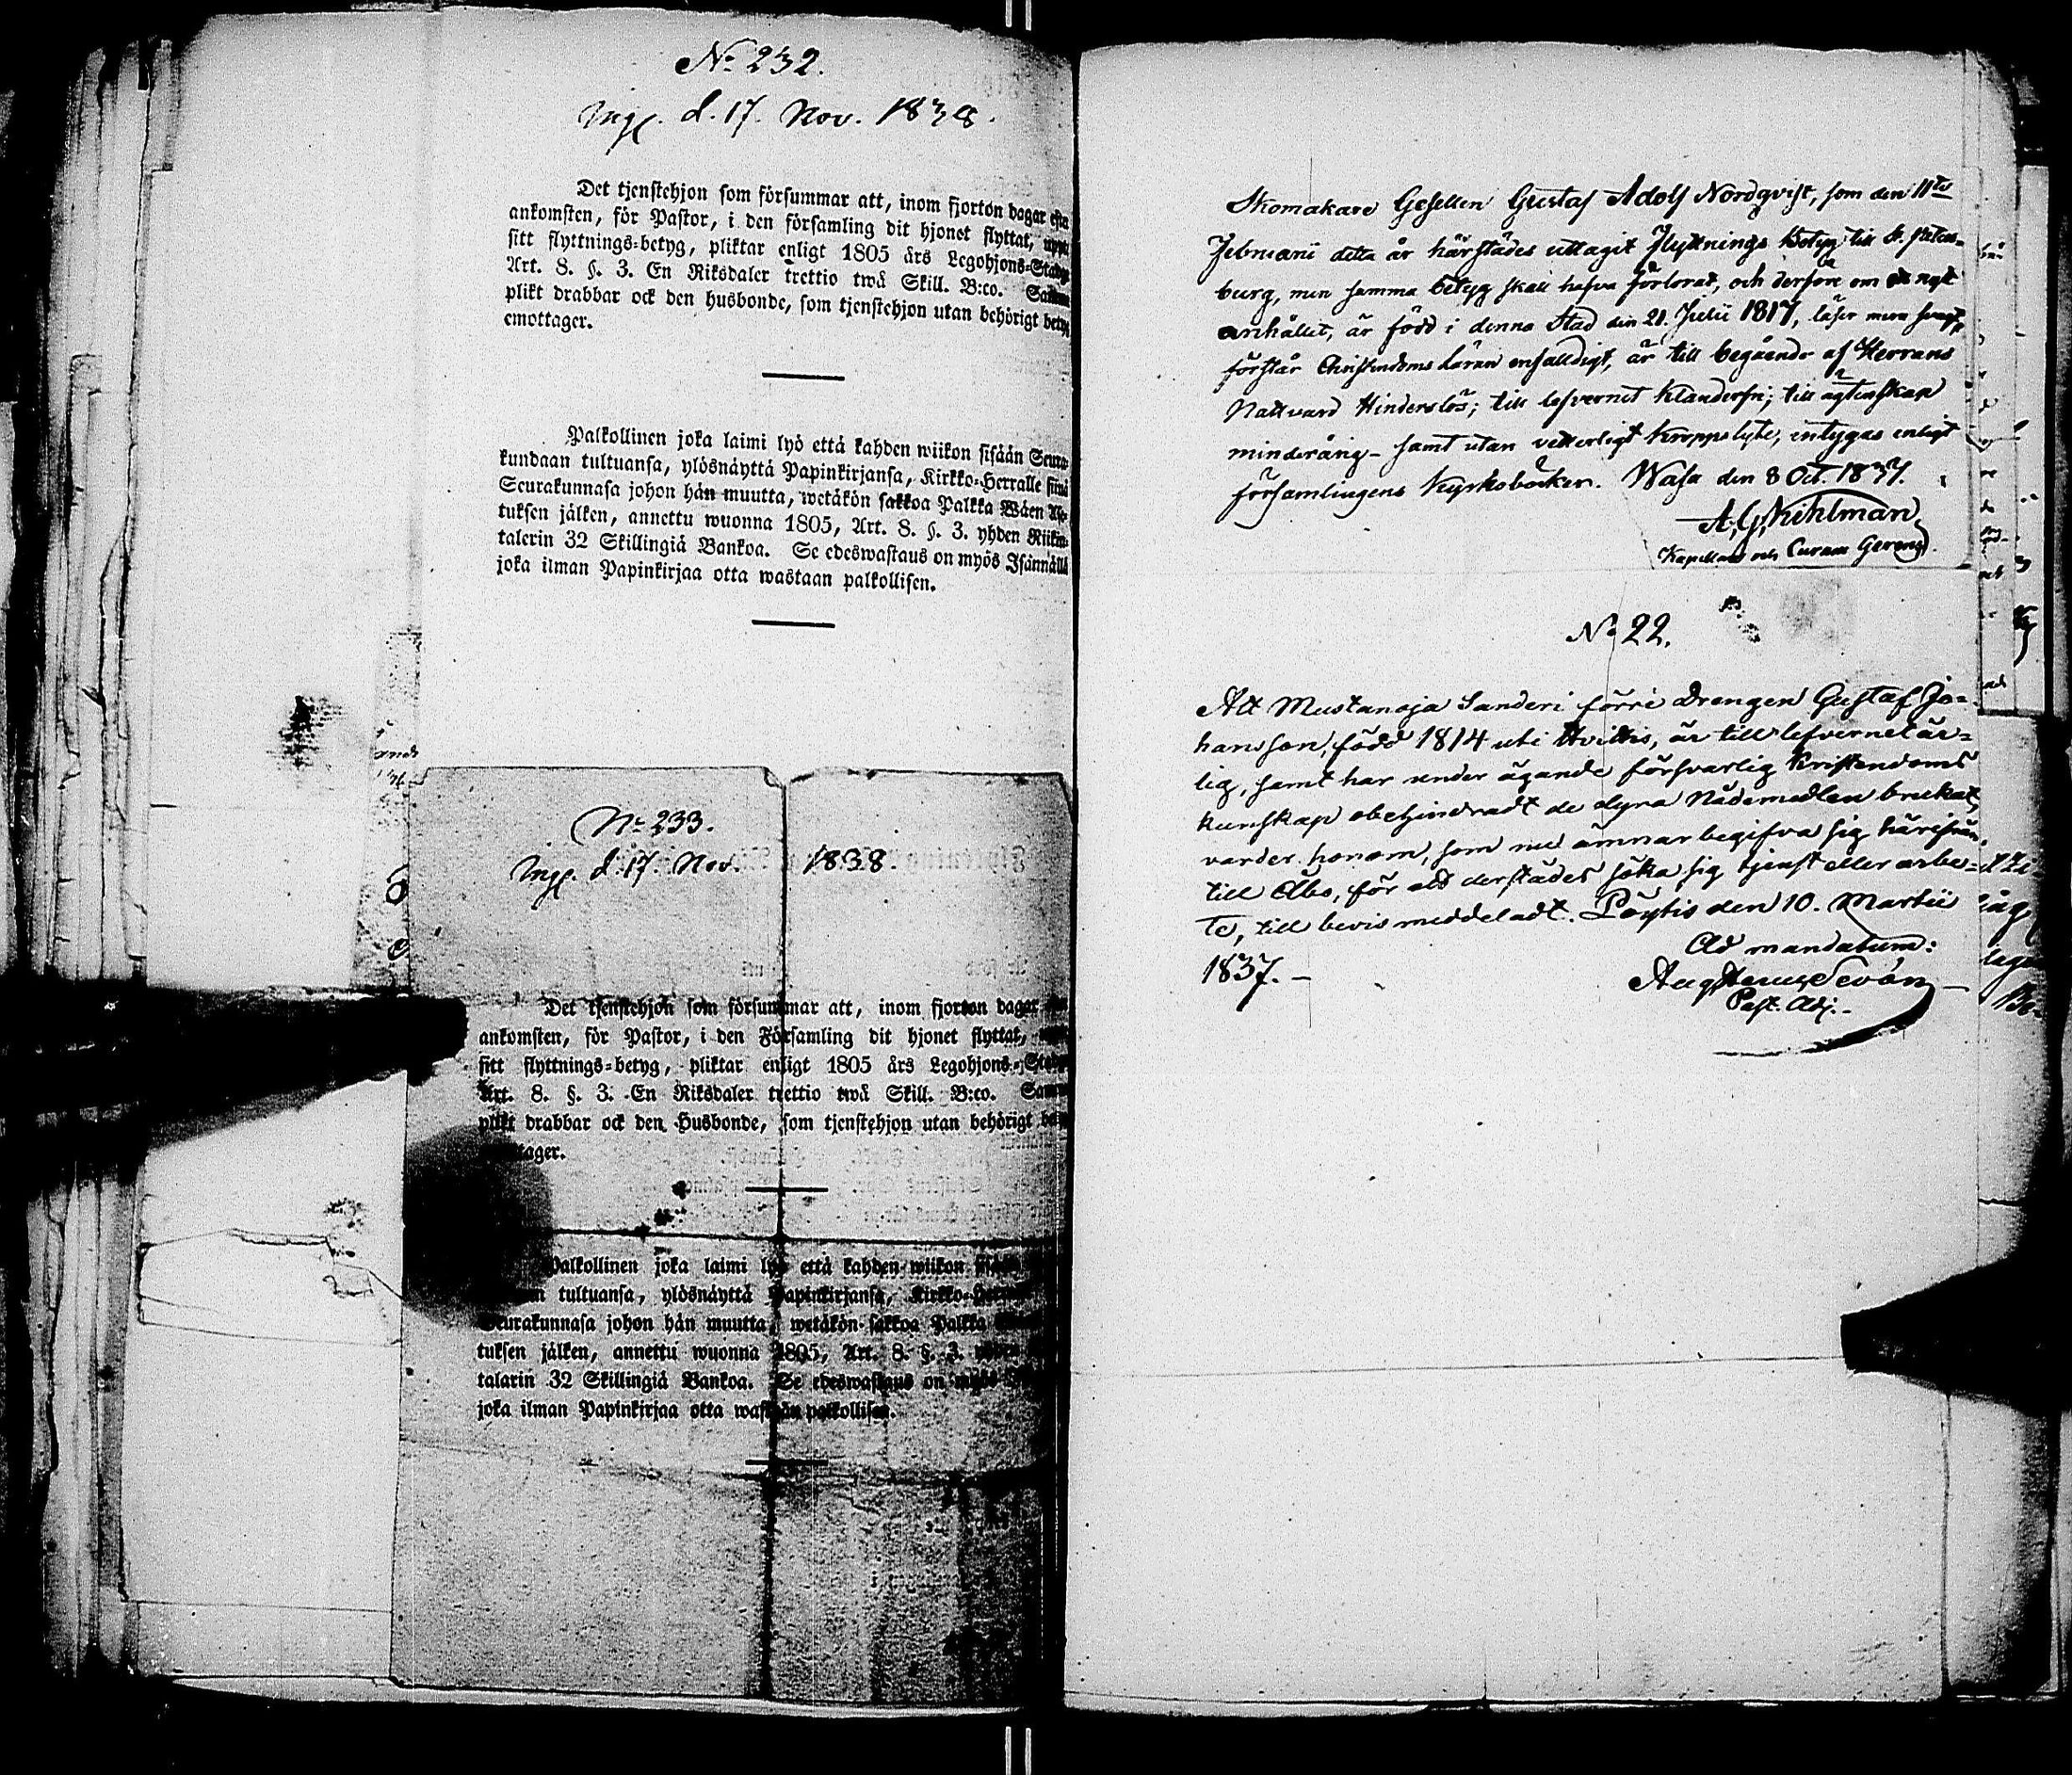 No 232.
Ingf. d. 17. Nov. 1838.
Det tjenstehjon som försummar att, inom fjorton dagar efter
ankomsten, för Pastor, i den församling dit hjonet flyttat,
sitt flyttnings-betyg, pliktar enligt 1805 års Legohjons-Stadg
Art. 8. §. 3. En Riksdaler trettio twå Skill. B:co. Samma
plikt drabbar ock den husbonde, som tjenstehjon utan behörigt betyg
emottager.
Palkollinen joka laimi lyö että kahden wiikon sisään Seura-
kundaan tultuansa, ylösnäyttä Papinkirjansa, Kirkko-Herralle siinä
Seurakunnasa johon hän muutta, wetäkön sakkoa Palkka Wäen
tuksen jälken, annettu wuonna 1805, Art. 8. §. 3. yhden Riikin-
talerin 32 Skillingiä Bankoa. Se edeswastaus on myös Isännällä
joka ilman Papinkirjaa otta wastaan palkollisen.
No 233.
Ingf. d. 17. Nov. 1838.
Det tjenstehjon som försummar att, inom fjorton dagar
ankomsten, för Pastor, i den Församling dit hjonet flyttat,
sitt flyttnings-betyg, pliktar enligt 1805 års Legohjons-Stad
Art. 8. §. 3. En Riksdaler trettio twå Skill. B:co. Sam
plikt drabbar ock den Husbonde, som tjenstehjon utan behörigt
tager.
Palkollinen joka laimi lyö että kahden wiikon
tultuansa, ylösnäyttä Papinkirjansa, Kirkko-
Seurakunnasa johon hän muutta, wetäkön sakkoa Palkka
tuksen jälken, annettu wuonna 1805, Art. 8. §. 3.
talarin 32 Skillingiä Bankoa. Se edeswastaus on myös
joka ilman Papinkirjaa otta wastaan palkollisen.
Skomakare Gesellen Gustaf Adolf Nordqvist, som den 11te
Februarii detta år härstädes uttagit Flyttnings Betyg till St. Peters-
burg, men samma betyg skall hafva förlorat, och derföre om nytt
anhållit, är född i denna Stad den 21. Julii 1817, läser
förstår Christendoms Läran enfalldigt, är till begående af Herrans
Nattvard Hinderslös; till lefvernet Klanderfri; till ägtenskap
minderårig – samt utan vetterligt Kroppslyte, intygas enligt
församlingens Kyrkoböcker. Wasa den 8 Oct. 1837.
A. G. Kihlman
Kapellan och Curam Gerens.
No 22.
Att Mustanoja Sanderi förre Drengen Gustaf Jo-
hansson, född 1814 uti Hvittis, är till lefvernet är-
lig, samt har under ägande försvarlig Kristendoms
kunskap obehindradt de dyra Nådemedlen brukat,
varder honom, som nu ämnar begifva sig härifrån
till Åbo, för att derstädes söka sig tjenst eller arbe-
te, till bevis meddeladt. Pöytis den 10. Martii
1837. –
Ad mandatum:
Past. Adj.